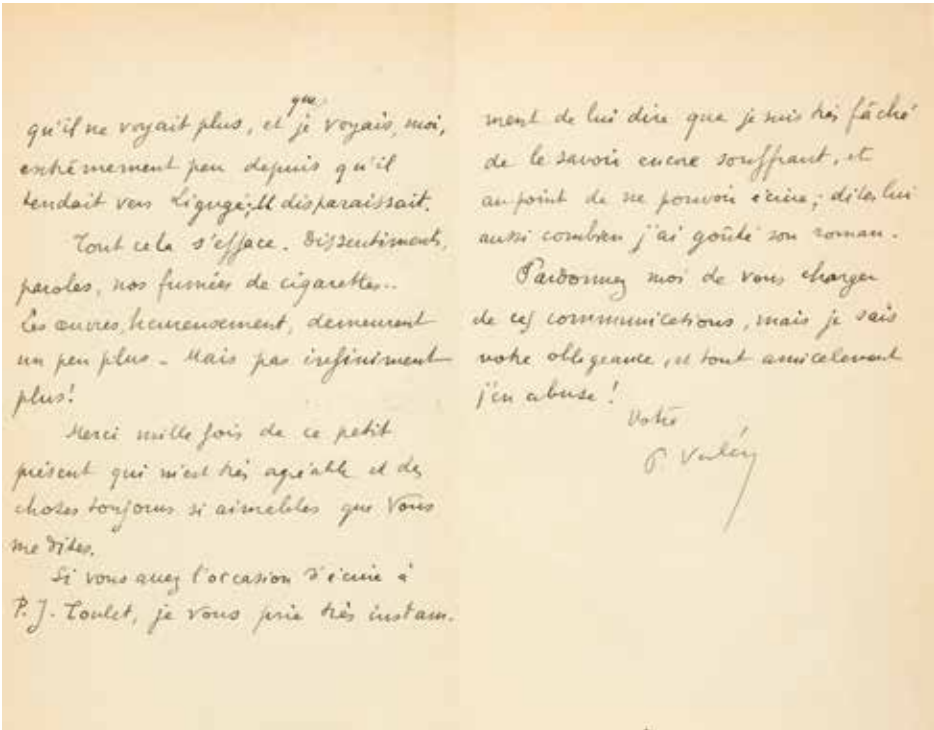 qu'il ne voyait plus, et que je voyais, moi,
extrêmement peu depuis qu'il
tendait vers Ligugé; Il disparaissait.
Tout cela s'efface. Dissentiments,
paroles, nos fumées de cigarettes..
Les œuvres, heureusement, demeurent
un peu plus - Mais pas infiniment
plus!
Merci mille fois de ce petit
présent qui m'est très agréable et des
choses toujours si aimables que Vous
me dites.
Si vous avez l'occasion d'écrire à
P. J. Toulet, je vous prie très instam-
ment de lui dire que je suis très fâché
de le savoir encore souffrant, et
au point de ne pouvoir écrire; dites lui
aussi combien j'ai goûté son roman.
Pardonnez moi de vous charger
de ces communications, mais je sais
votre obligeance, et tout amicalement
j'en abuse!
Votre
P. Valéry